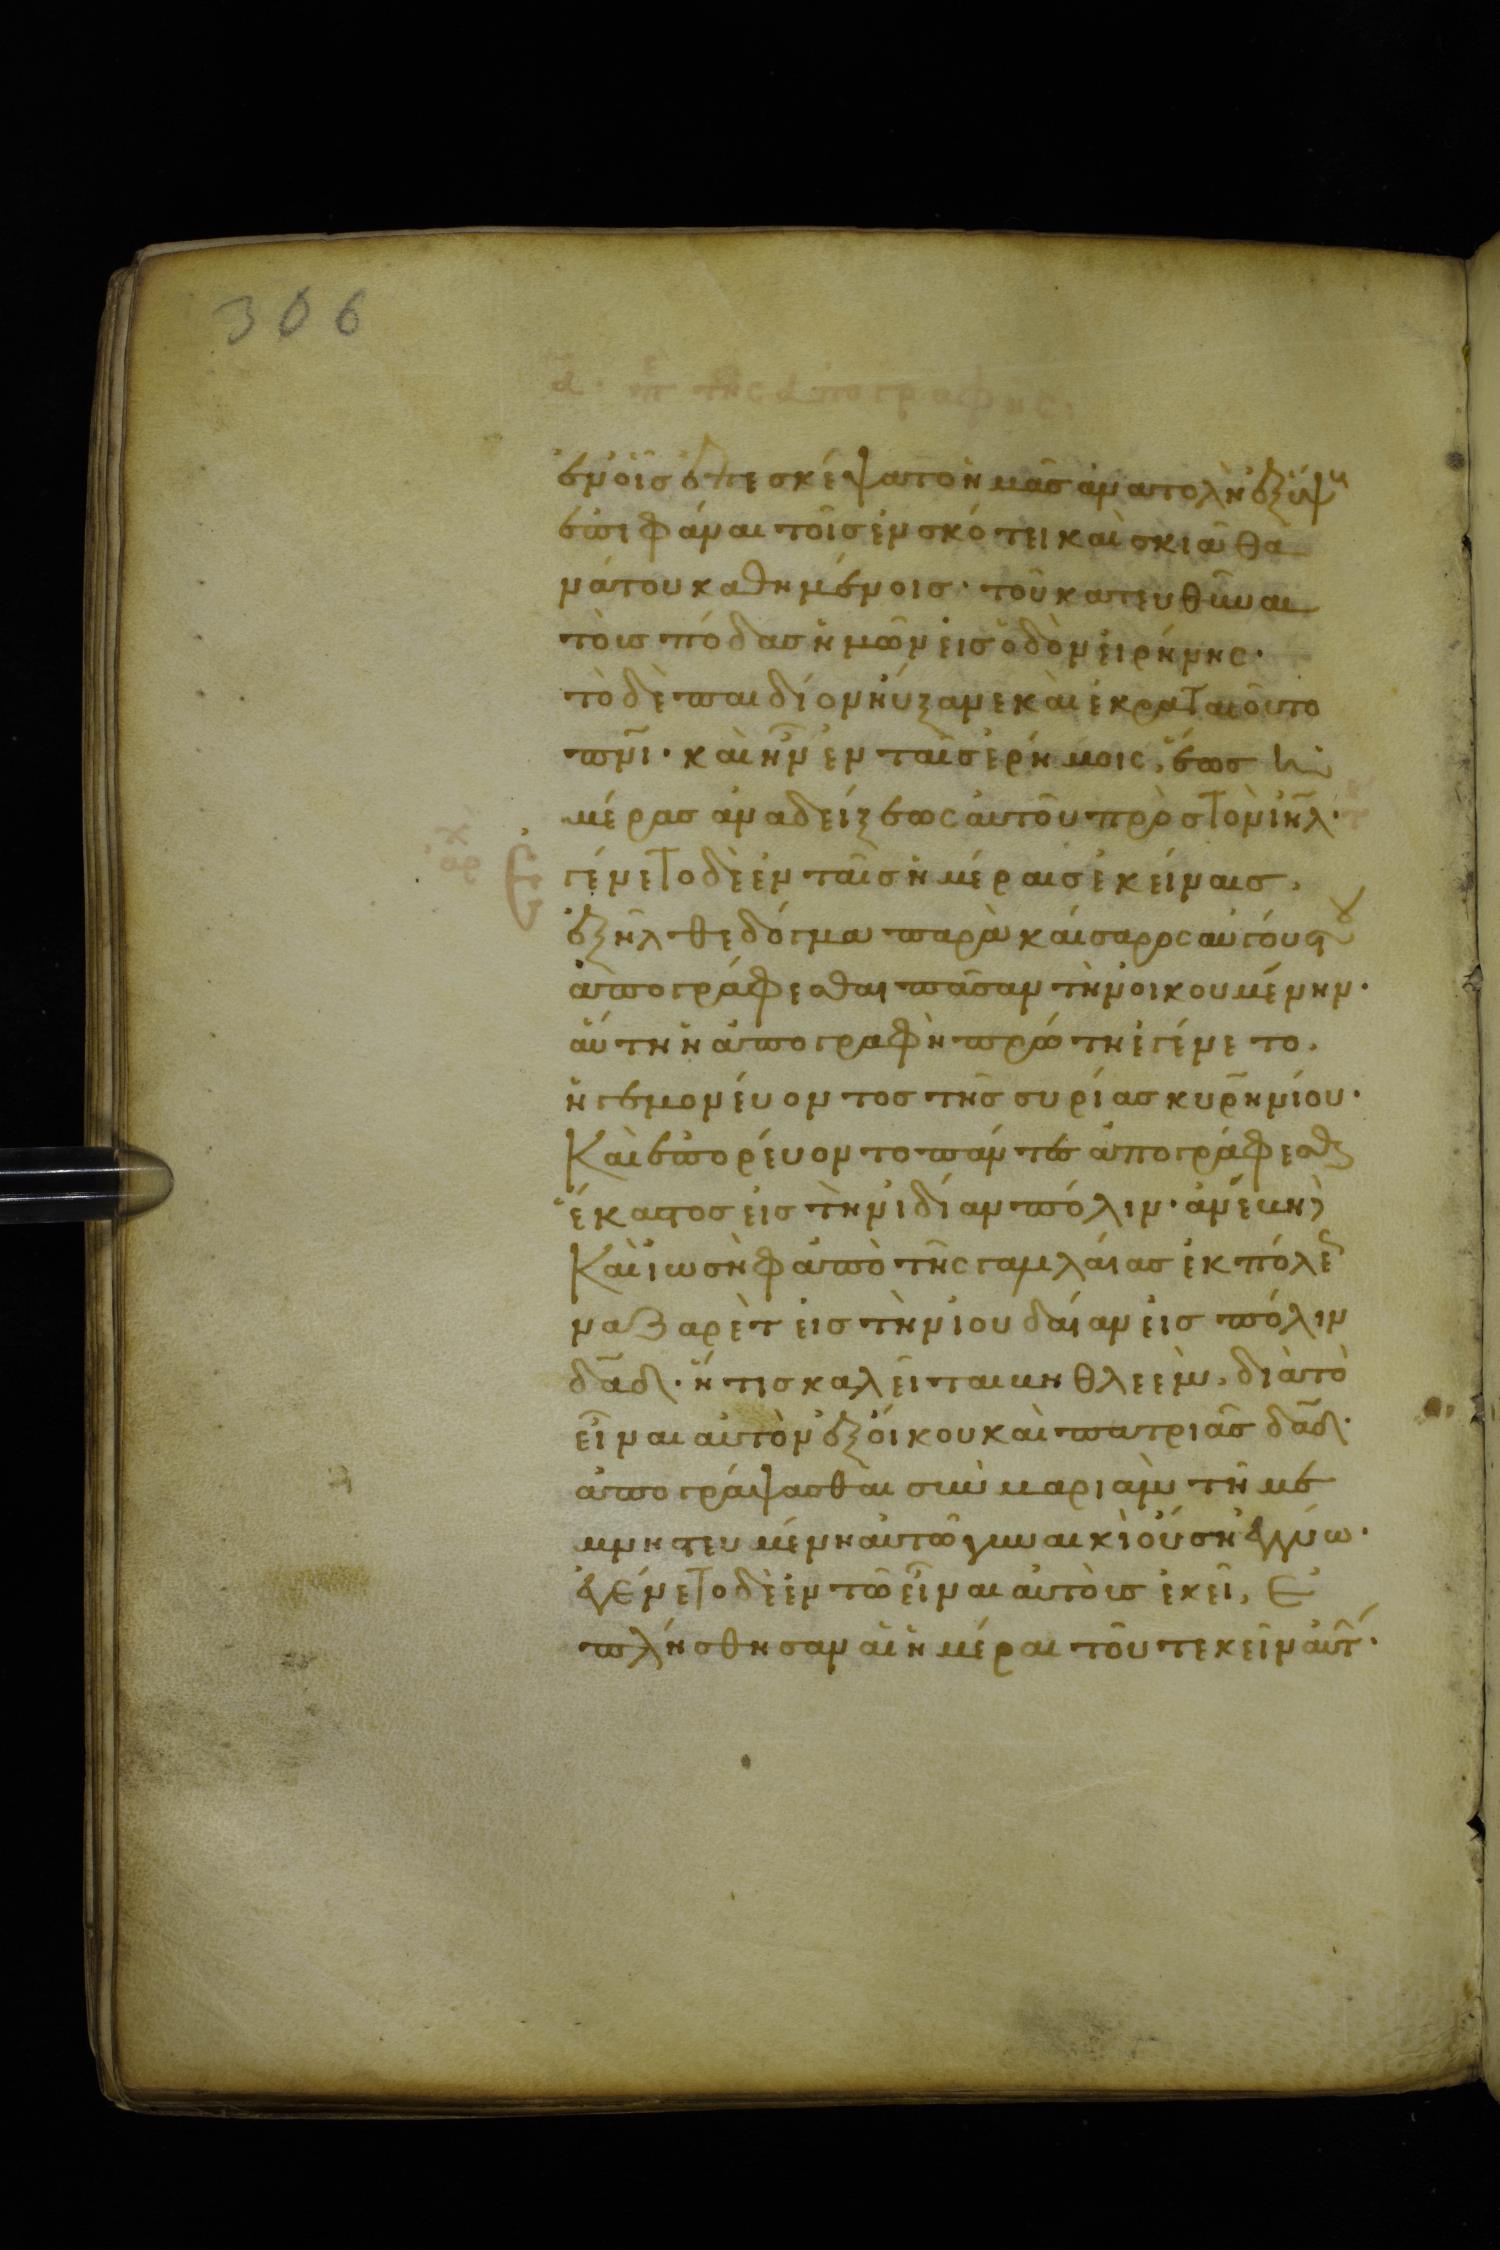 306
α. πε τῆς ἀπογραφῆς.
ἐν οἷς ἐπεσκέψατο ἡμᾶς ἀνατολὴ ἐξ ὕψ
ἐπιφάναι τοῖς ἐν σκότει καὶ σκιᾶ θα
νάτου καθημένοις· τοῦ κατευθῦναι
τοὺς πόδας ἡμῶν εἰς ὁδὸν εἰρήνης·
τὸ δὲ παιδίον ηὔξανε καὶ ἐκραταιοῦτο
πνι· καὶ ἦν ἐν ταῖς ἐρήμοις, ἕως ἡ
μέρας ἀναδείξεως αὐτοῦ πρὸς τὸν ιηλ·
Ἐγένετο δὲ ἐν ταῖς ἡμέραις ἐκείναις,
ἐξῆλθε δόγμα παρὰ καίσαρος αὐγούστου
ἀπογράφεσθαι πᾶσαν τὴν οἰκουμένην·
αὕτη ἡ ἀπογραφὴ πρώτη ἐγένετο,
ἡγεμονεύοντος τῆς συρίας κυρηνίου·
Καὶ ἐπορεύοντο πάντες ἀπογράφεσθαι
ἕκαστος εἰς τὴν ἰδίαν πόλιν· ἀνέβη δὲ
Καὶ ἰωσὴφ ἀπὸ τῆς γαλλαίας ἐκ πόλε
ναζαρὲτ εἰς τὴν ἰουδαίαν εἰς πόλιν
δαδ· ἥτις καλεῖται βηθλεὲμ, διὰ τὸ
εἶναι αὐτὸν ἐξ οἴκου καὶ πατριᾶς δαδ·
ἀπογράψασθαι σὺν μαριὰμ τῆ με
μνηστευμένη αὐτῶ γυναικὶ οὔση ἐγγύω·
ἐγένετο δὲ ἐν τῶ εἶναι αὐτοὺς ἐκεῖ, ἐ
πλήσθησαν αἱ ἡμέραι τοῦ τεκεῖν αὐτ·